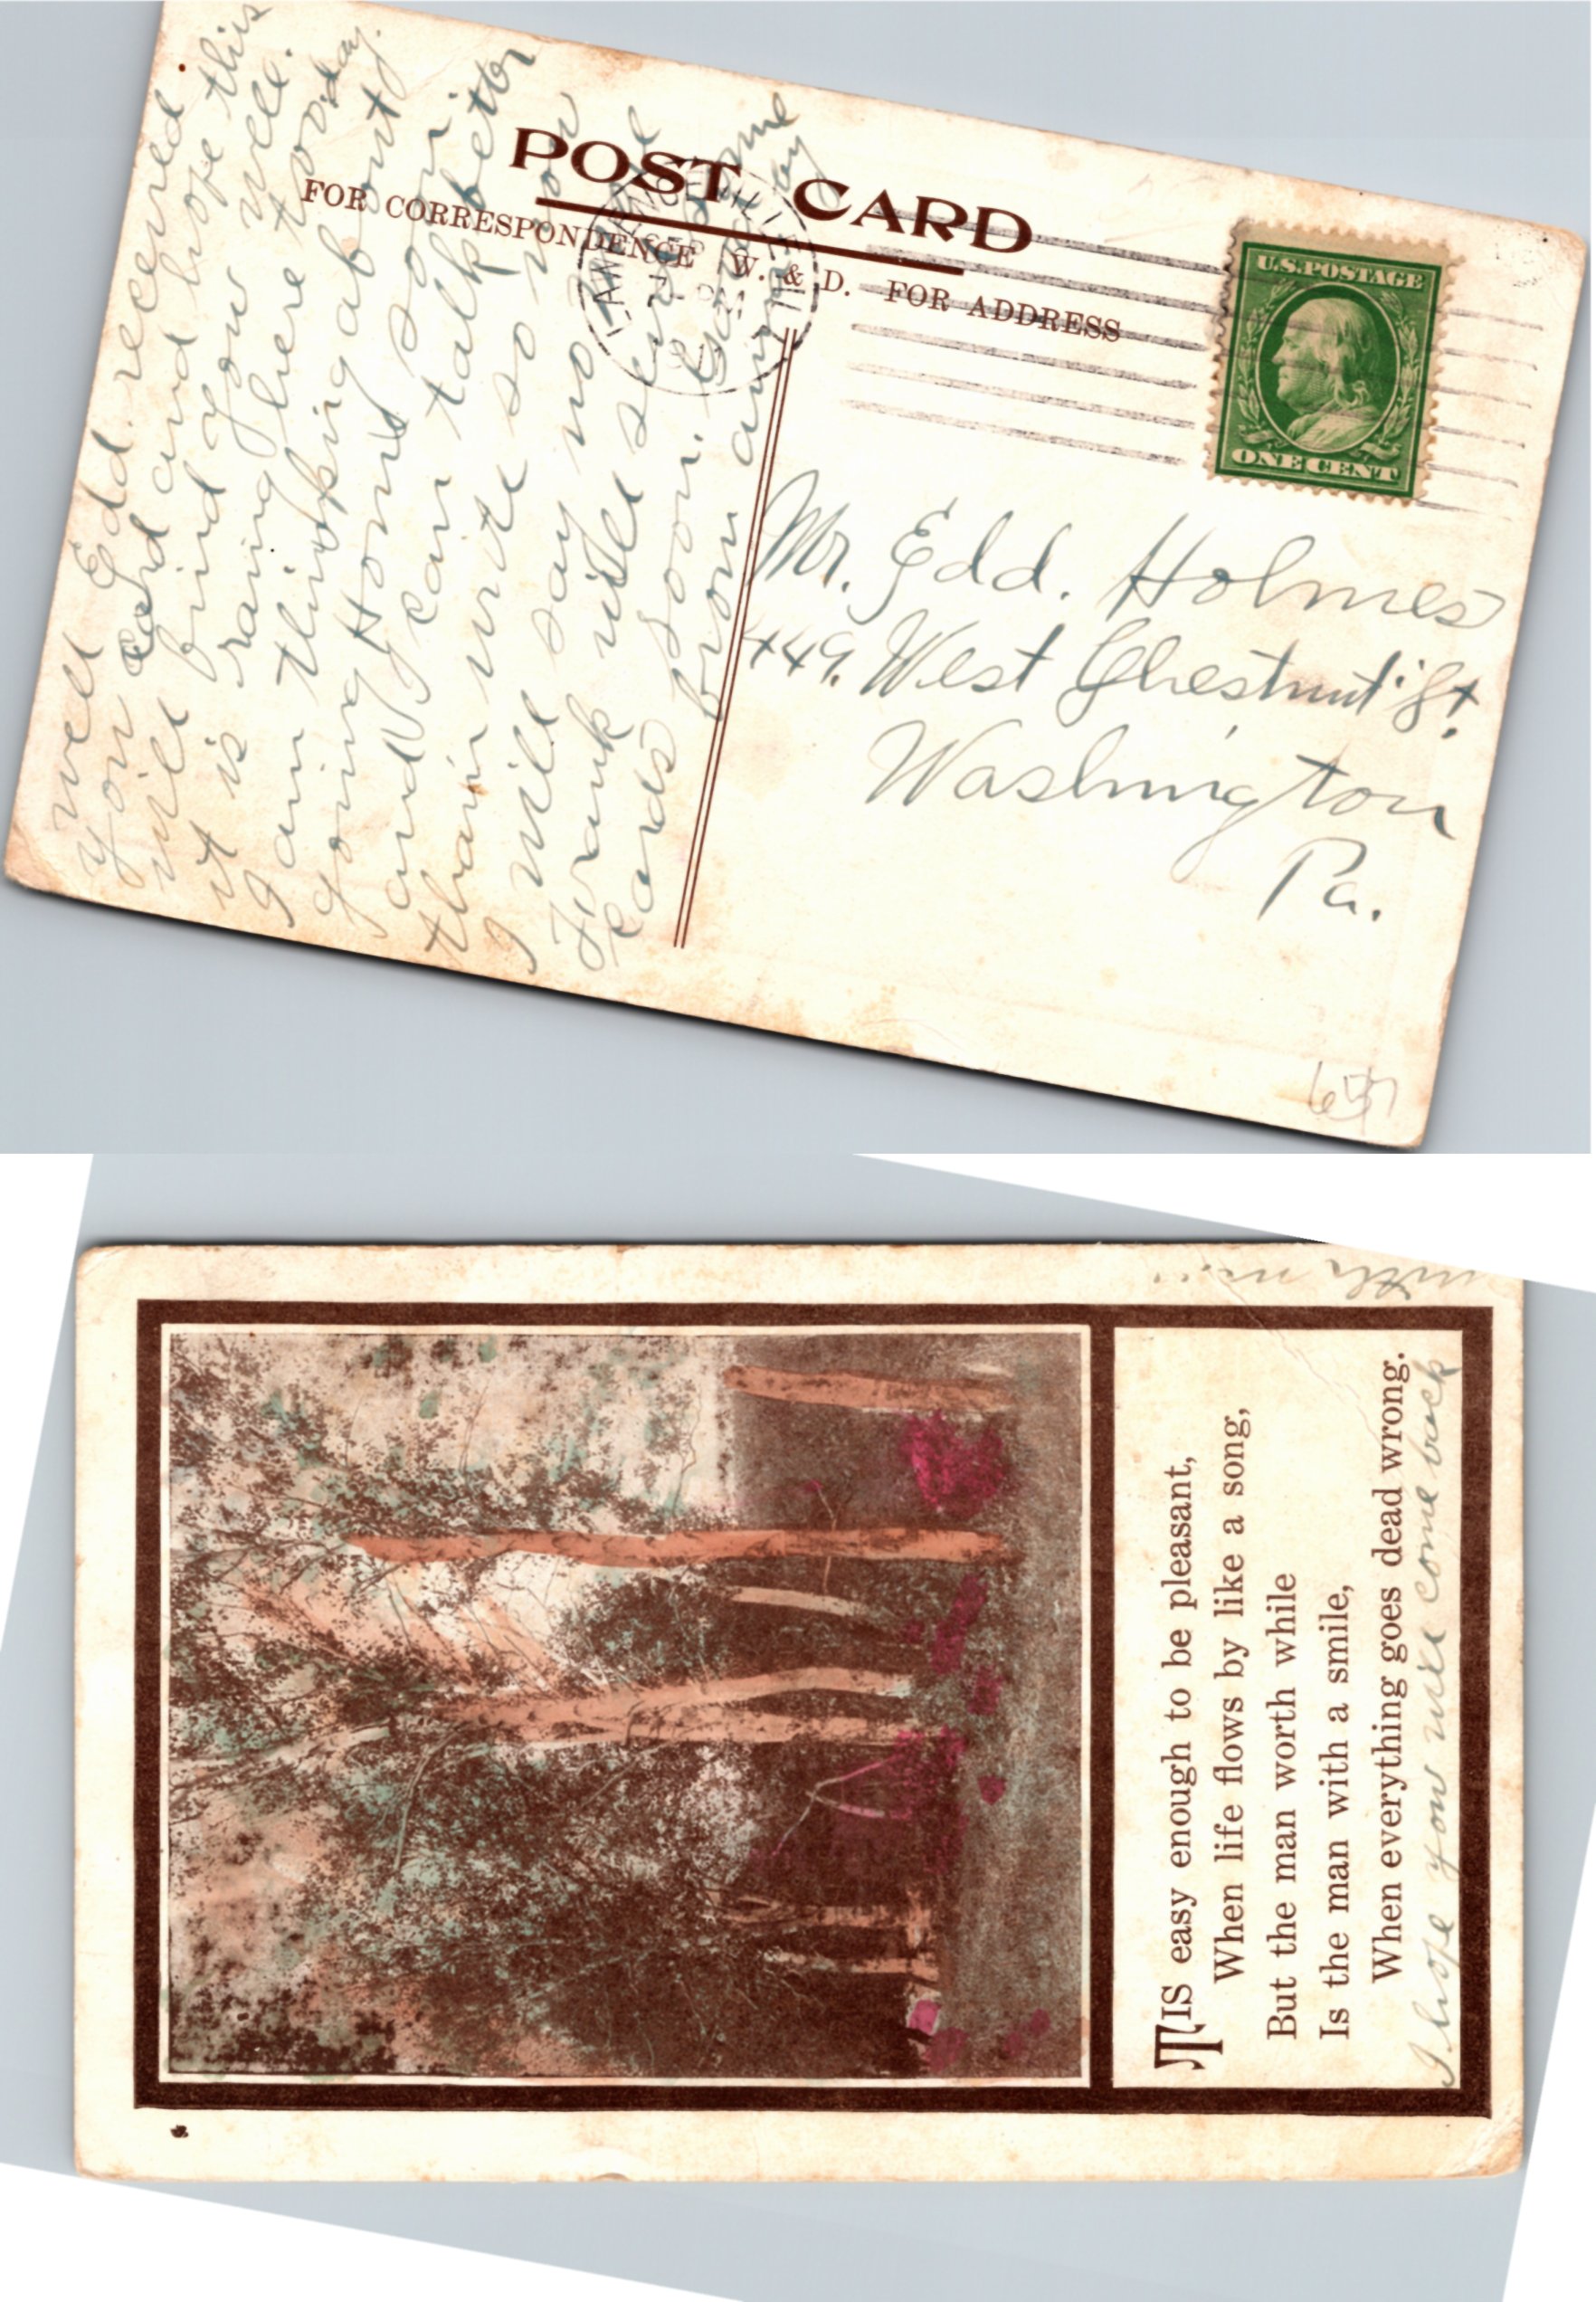 POST CARD
FOR CORRESPONDENCE W. & D. FOR ADDRESS
U.S. POSTAGE
ONE CENT
well Edd. received
you card and hope this
will find you well.
it is raing here today.
I am thinking about
going Home soon.
and I can talk better
than write so now
I will say no
Frank will send some
cards soon.
from
Mr. Edd. Holmes
449. West Chestnut St.
Washington
Pa.
657
'TIS easy enough to be pleasant,
When life flows by like a song,
But the man worth while
Is the man with a smile,
When everything goes dead wrong.
I hope you will come back
with